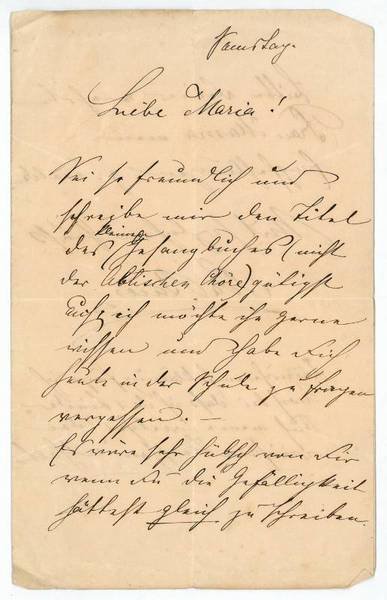 Samstag.
Liebe Maria!
Sei so freundlich und
schreibe mir den Titel
des kleinen Gesangbuches (nicht
der Abtischen Chöre) gütigst
auf, ich möchte ihn gerne
wissen und habe Dich
heute in der Schule zu fragen
vergessen. —
Es wäre sehr hübsch von Dir
wenn Du die Gefälligkeit
hättest gleich zu schreiben